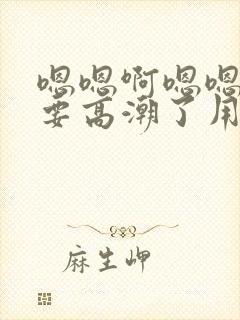 嗯嗯啊嗯嗯
要高潮了用
麻生岬